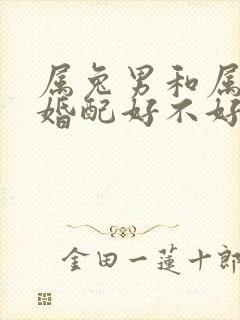 属兔男和属
婚配好不好
金田一蓮十郎